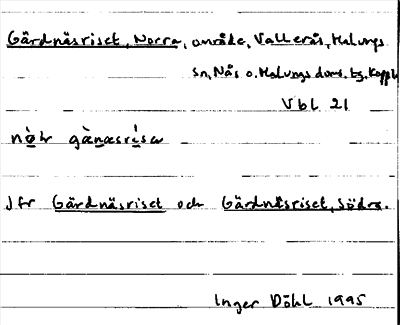 Gärdnäsriset, Norra, område, Vallerås, Malungs
sn, Nås o. Malungs doms. tg, Kopph
Vbl 21
nö̀r gä̀næsrìsə
Jfr Gärdnäsriset och Gärdnäsriset, Södra.
Inger Döhl 1995